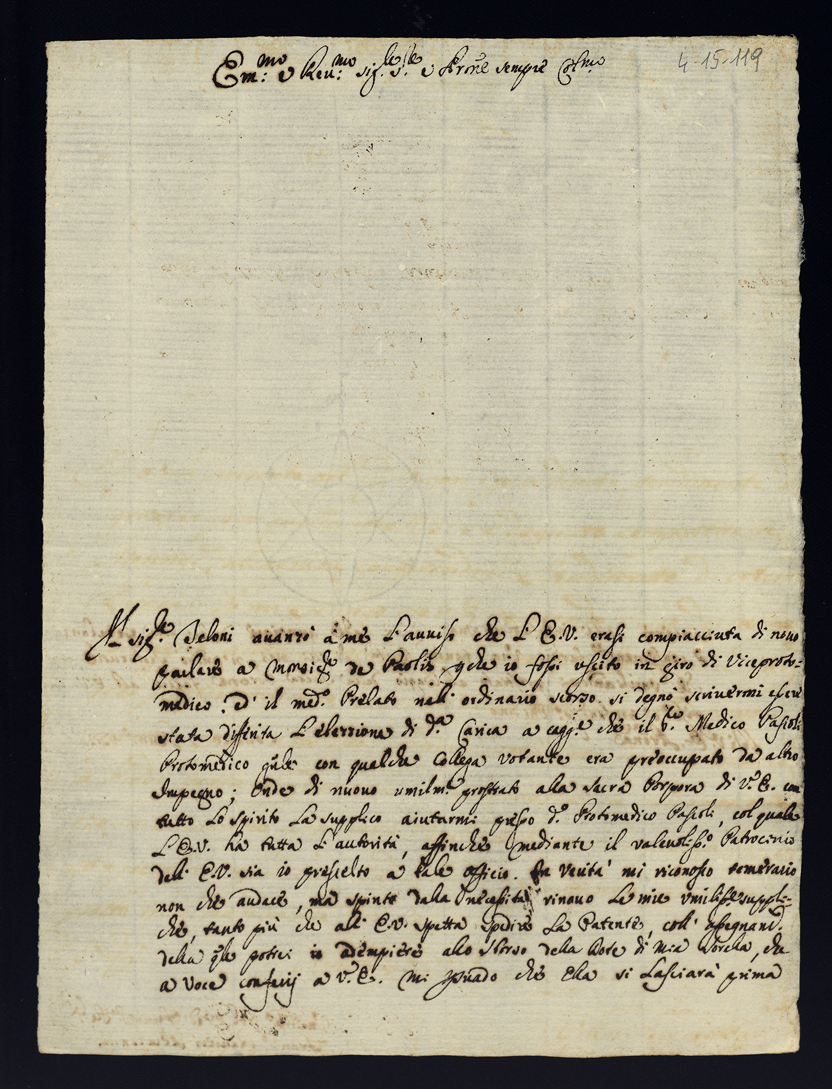 4-15-119
Em:mo e Reu:mo sig:le s:le e Prone sempre Col:mo
Il sig:le Seloni auanzò à me l'auuiso che l'E.V. erasi compiacciuta di nouo
parlare a Monsig:le de Paolis che io fossi uscito in giro di Viceproto-
medico. Ed il med:o Prelato nell'ordinario scorso si degnò scriuermi essere
stata differita l'elezzione di d:a Carica a cagg:e che il s:r Medico Pascoli
Protomedico q:le con qualche Collega votante era preoccupato da altro
Impegno; onde di nuouo umilm:e prostrato alla Sacra Porpora di V:a E. con
tutto lo spirito la supplico aiutarmi presso d:o Protomedico Pascoli, col quale
l'E.V. hà tutta l'autorità, affinche mediante il valeuoliss:o Patrocinio
dell'E.V. sia io prescielto a tale officio. In verità mi riconosco temerario
non che audace, ma spinto dalla necessità rinouo le mie umiliss:e suppli-
che, tanto più che all'E.V. spetta spedire la Patente, coll'assegnam:to
della q:le potrei io adempiere allo sborso della Dote di mia Sorella, che
a voce conferij a V:a E. mi persuado che Ella si lasciarà prima